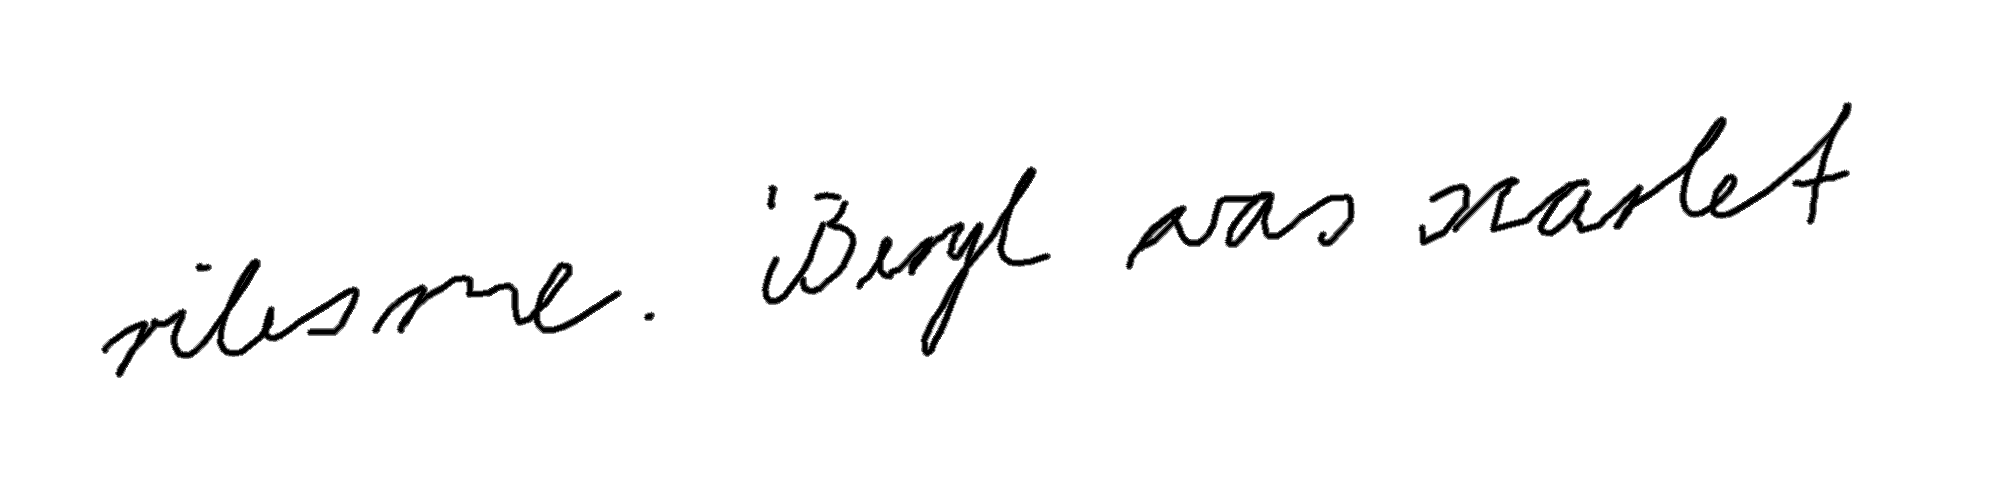 riles me. 'Beryl was scarlet